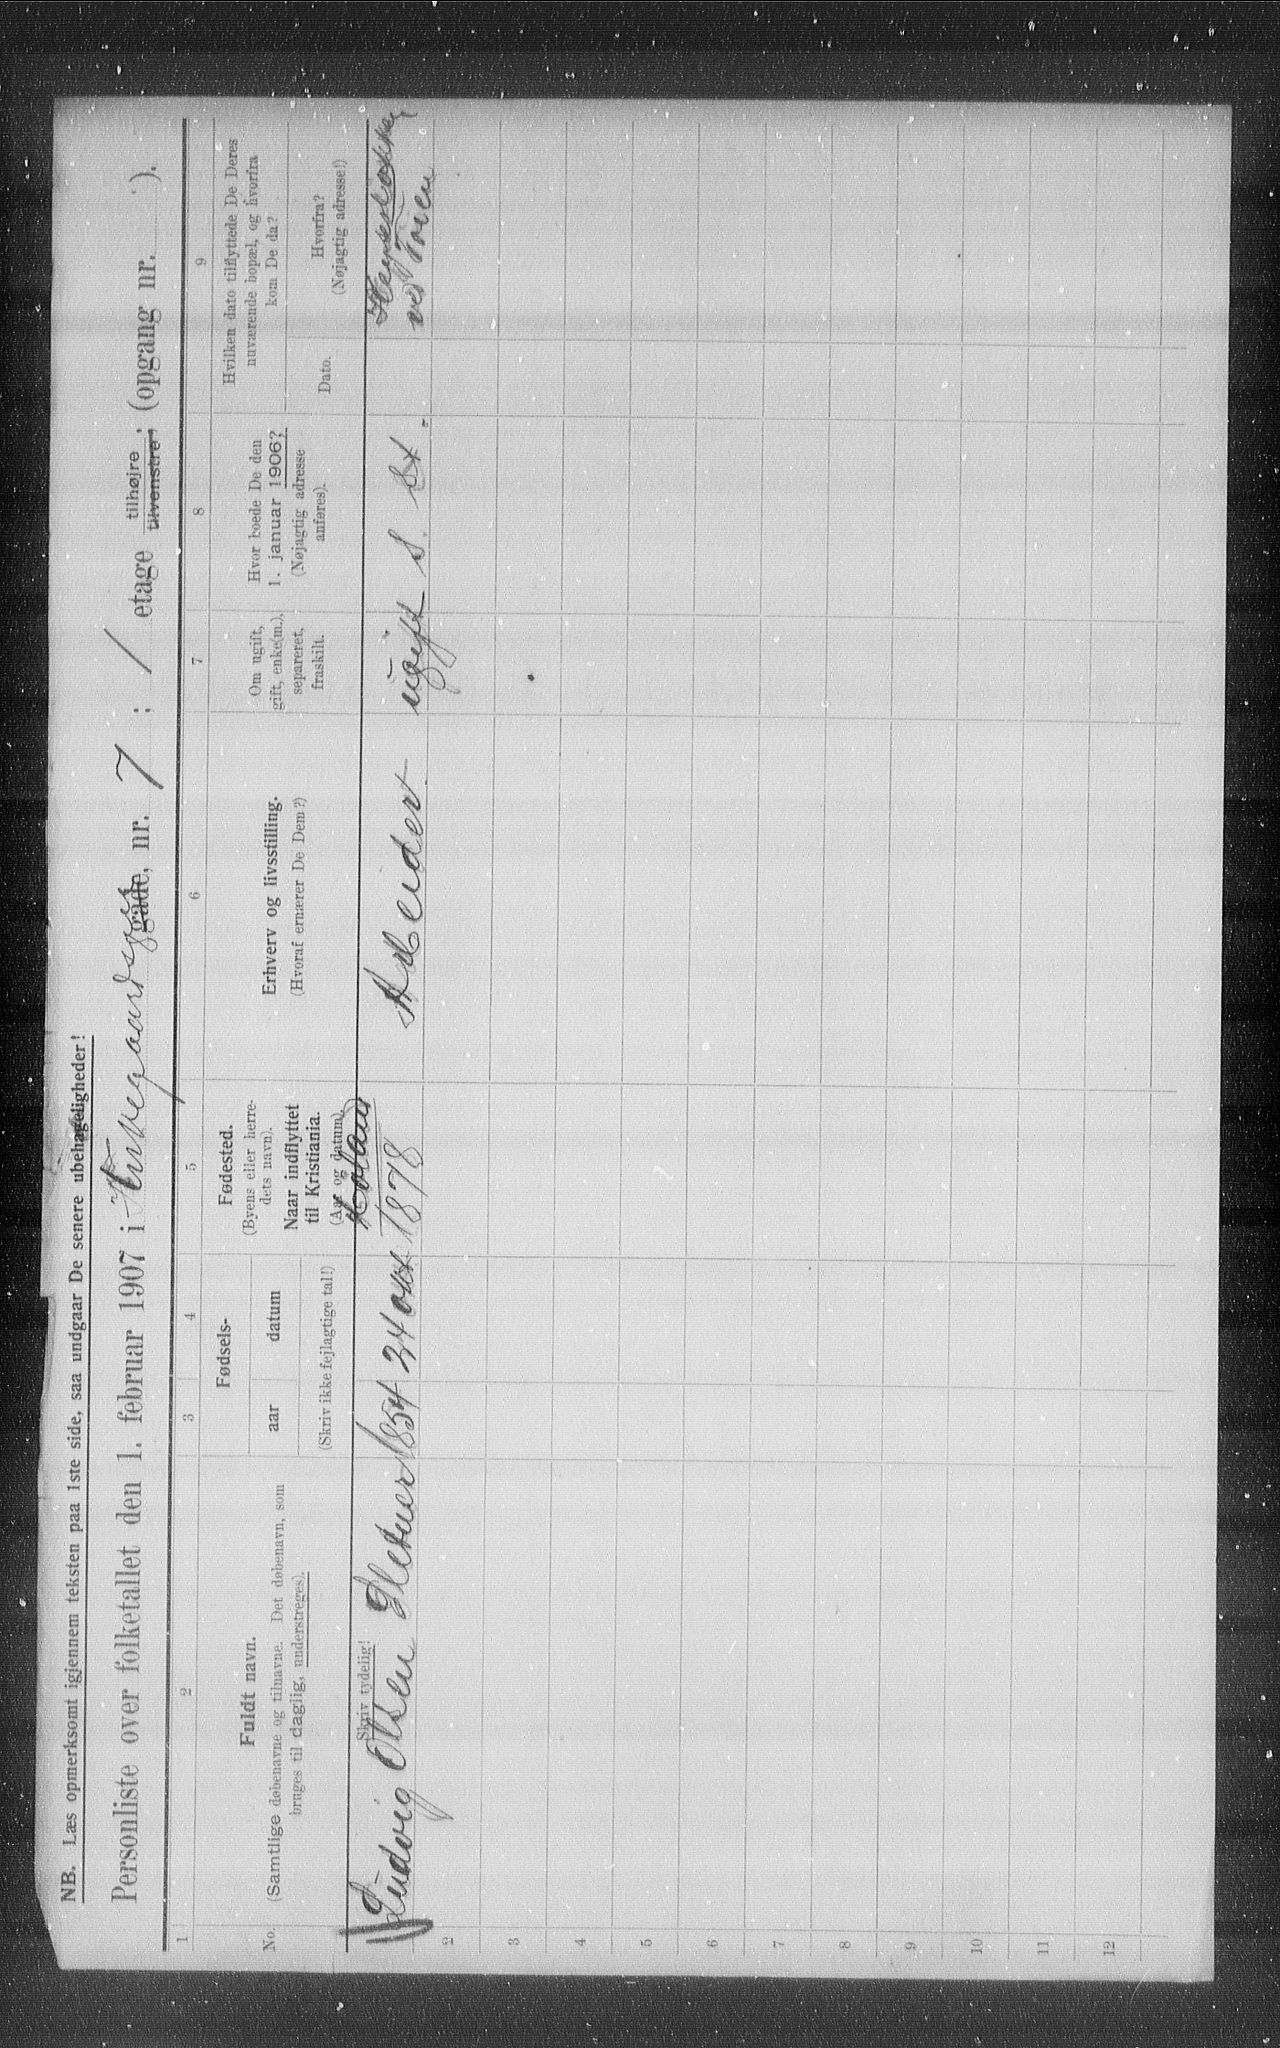 NB. Læs opmerksomt igjennem teksten paa 1ste side, saa undgaar De senere ubehageligheder!
Personliste over folketallet den 1. februar 1907 i gade, nr. 7; 1 etage tilhøjre tilvenstre; (opgang nr. ).
1 2 3 4 5 6 7 8 9
No.
Fuldt navn.
(Samtlige døbenavne og tilnavne. Det døbenavn, som
bruges til daglig, understreges).
Skriv tydelig!
Fødsels-
aar datum
(Skriv ikke fejlagtige tal!)
Fødested.
(Byens eller herre-
dets navn).
Naar indflyttet
til Kristiania.
(Aar og datum)
Erhverv og livsstilling.
(Hvoraf ernærer De Dem?)
Om ugift,
gift, enke(m.),
separeret,
fraskilt.
Hvor boede De den
1. januar 1906?
(Nøjagtig adresse
anføres).
Hvilken dato tilflyttede De Deres
nuværende bopæl, og hvorfra
kom De da?
Dato.
Hvorfra?
(Nøjagtig adresse!)
Ludvig Olsen 1854 24 okt 1878 Arbeider ugift S. St.
ved
2
3
4
5
6
7
8
9
10
11
12